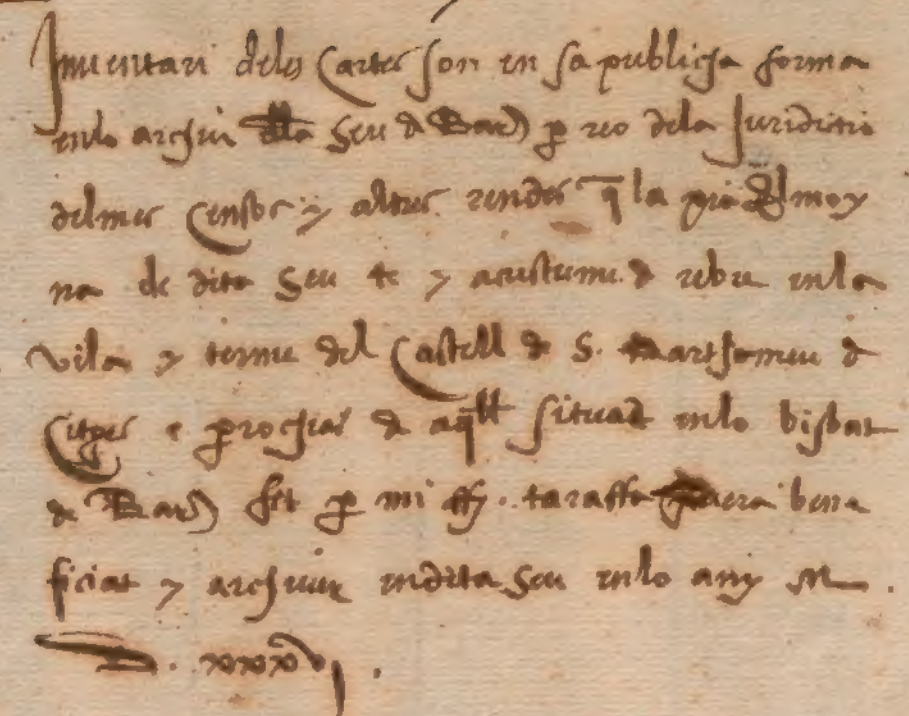 Inventari deles Cartes son en sa publicha forma
enlo archiu dela Seu d Bar) p reo dela Juridictio
delmes Censos y altres rendes q la pia Elmoy
na de dita Seu te y acustume d rebre enla
vila y terme del Castell de S. Barthomeu d
Citges e prochias d aqll situad enlo bisbat
de Bar) fet p mi ff. taraffa prevera bene
ficiat y archiver endita Seu enlo any M.
D. xxxvj.